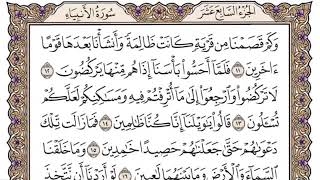 الجزء السابع عشر
سورة الأنبياء
وَكَمْ قَصَمْنَا مِن قَرْيَةٍ كَانَتْ ظَالِمَةً وَأَنشَأْنَا بَعْدَهَا قَوْمًا
ءَاخَرِينَ ١١ فَلَمَّآ أَحَسُّوا۟ بَأْسَنَآ إِذَا هُم مِّنْهَا يَرْكُضُونَ ١٢
لَا تَرْكُضُوا۟ وَٱرْجِعُوٓا۟ إِلَىٰ مَآ أُتْرِفْتُمْ فِيهِ وَمَسَٰكِنِكُمْ لَعَلَّكُمْ
تُسْـَٔلُونَ ١٣ قَالُوا۟ يَٰوَيْلَنَآ إِنَّا كُنَّا ظَٰلِمِينَ ١٤ فَمَا زَالَت تِّلْكَ
دَعْوَىٰهُمْ حَتَّىٰ جَعَلْنَٰهُمْ حَصِيدًا خَٰمِدِينَ ١٥ وَمَا خَلَقْنَا
ٱلسَّمَآءَ وَٱلْأَرْضَ وَمَا بَيْنَهُمَا لَٰعِبِينَ ١٦ لَوْ أَرَدْنَآ أَن نَّتَّخِذَ